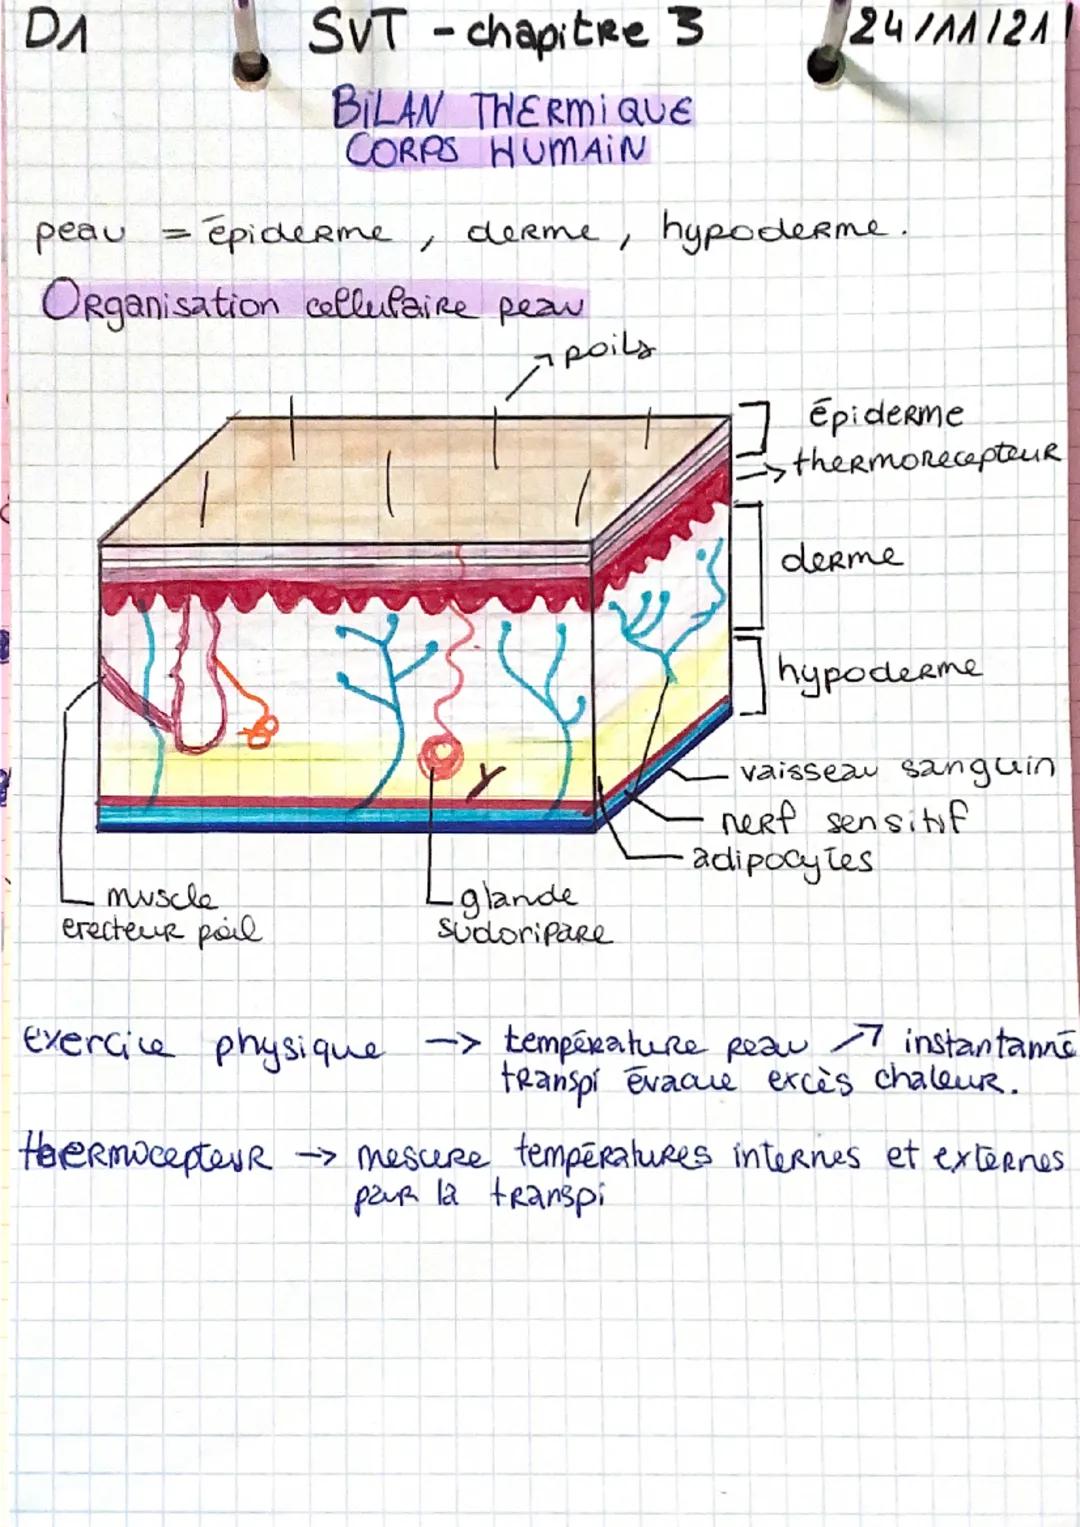 D1 SVT - chapitre 3 24/11/21
BiLAN THERMiQUE
CORPS HUMAiN
peau = épiderme, derme, hypoderme.
Organisation cellulaire peau
poils
épiderme
thermorecepteur
derme
hypoderme
vaisseau sanguin
nerf sensitif
adipocytes
muscle
erecteur poil
glande
sudoripare
exercice physique -> température peau ↗ instantanné
transpi évacue excès chaleur.
thermocepteur -> mesure températures internes et externes
par la transpi